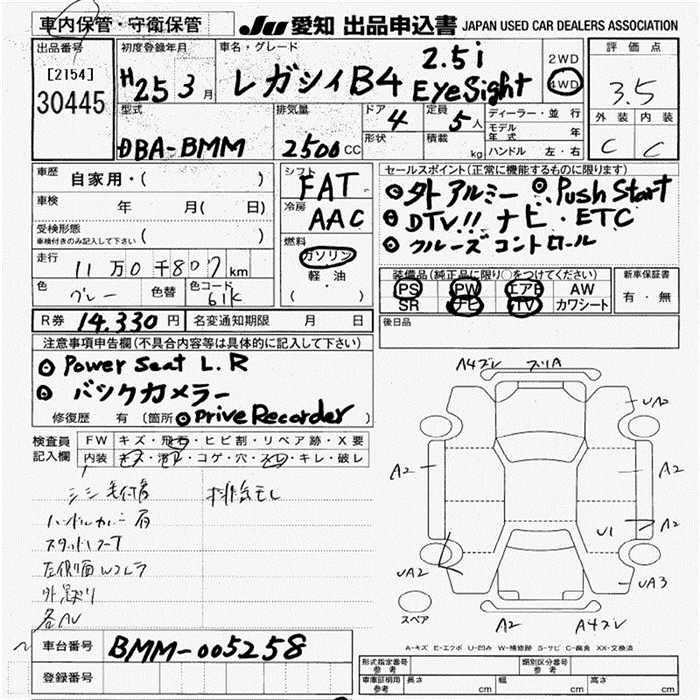 車内保管・守衛保管
JU 愛知 出品申込書 JAPAN USED CAR DEALERS ASSOCIATION
出品番号
[2154]
30445
初度登録年月
H25 3月
車名・グレード
レガシィB4 2.5i EyeSight
2WD
4WD
評価点
3.5
外装 内装
C C
型式
DBA-BMM
排気量
2500 CC
ドア 4
形状
定員 5人
積載 kg
ディーラー・並行
モデル年式 年
ハンドル 左・右
車歴 自家用・( )
車検 年 月( 日)
受検形態
車検付きのみ記入して下さい ( )
走行 11万0千807km
色 グレー 色替 色コード 61K
シフト FAT
冷房 AAC
燃料
ガソリン
軽・油
( )
セールスポイント(正常に機能するものに限ります)
外アルミー Push Start
DTV!! ナビ・ETC
クルーズコントロール
装備品(純正品に限り○をつけてください)
PS PW エアB AW
SR ナビ TV カワシート
新車保証書
有・無
後日品
R券 14,330円 名変通知期限 月 日
注意事項申告欄(不具合内容等は具体的に記入して下さい)
Power Seat L.R
バックカメラー
修復歴 有(箇所 Drive Recorder
検査員記入欄
FW キズ・飛石・ヒビ割・リペア跡・X要
内装 キズ・汚れ・コゲ・穴・スレ・キレ・破レ
A4ズレ
A2
A2
A2
U1
UA2
UA3
A2
A4ズレ
スペア
A-キズ E-エクボ U-凹み W-補修跡 S-サビ C-腐食 XX-交換済
車台番号 BMM-005258
登録番号
形式指定番号
参考
類別区分番号
参考
車庫証明用
参考
長さ cm 幅 cm 高さ cm